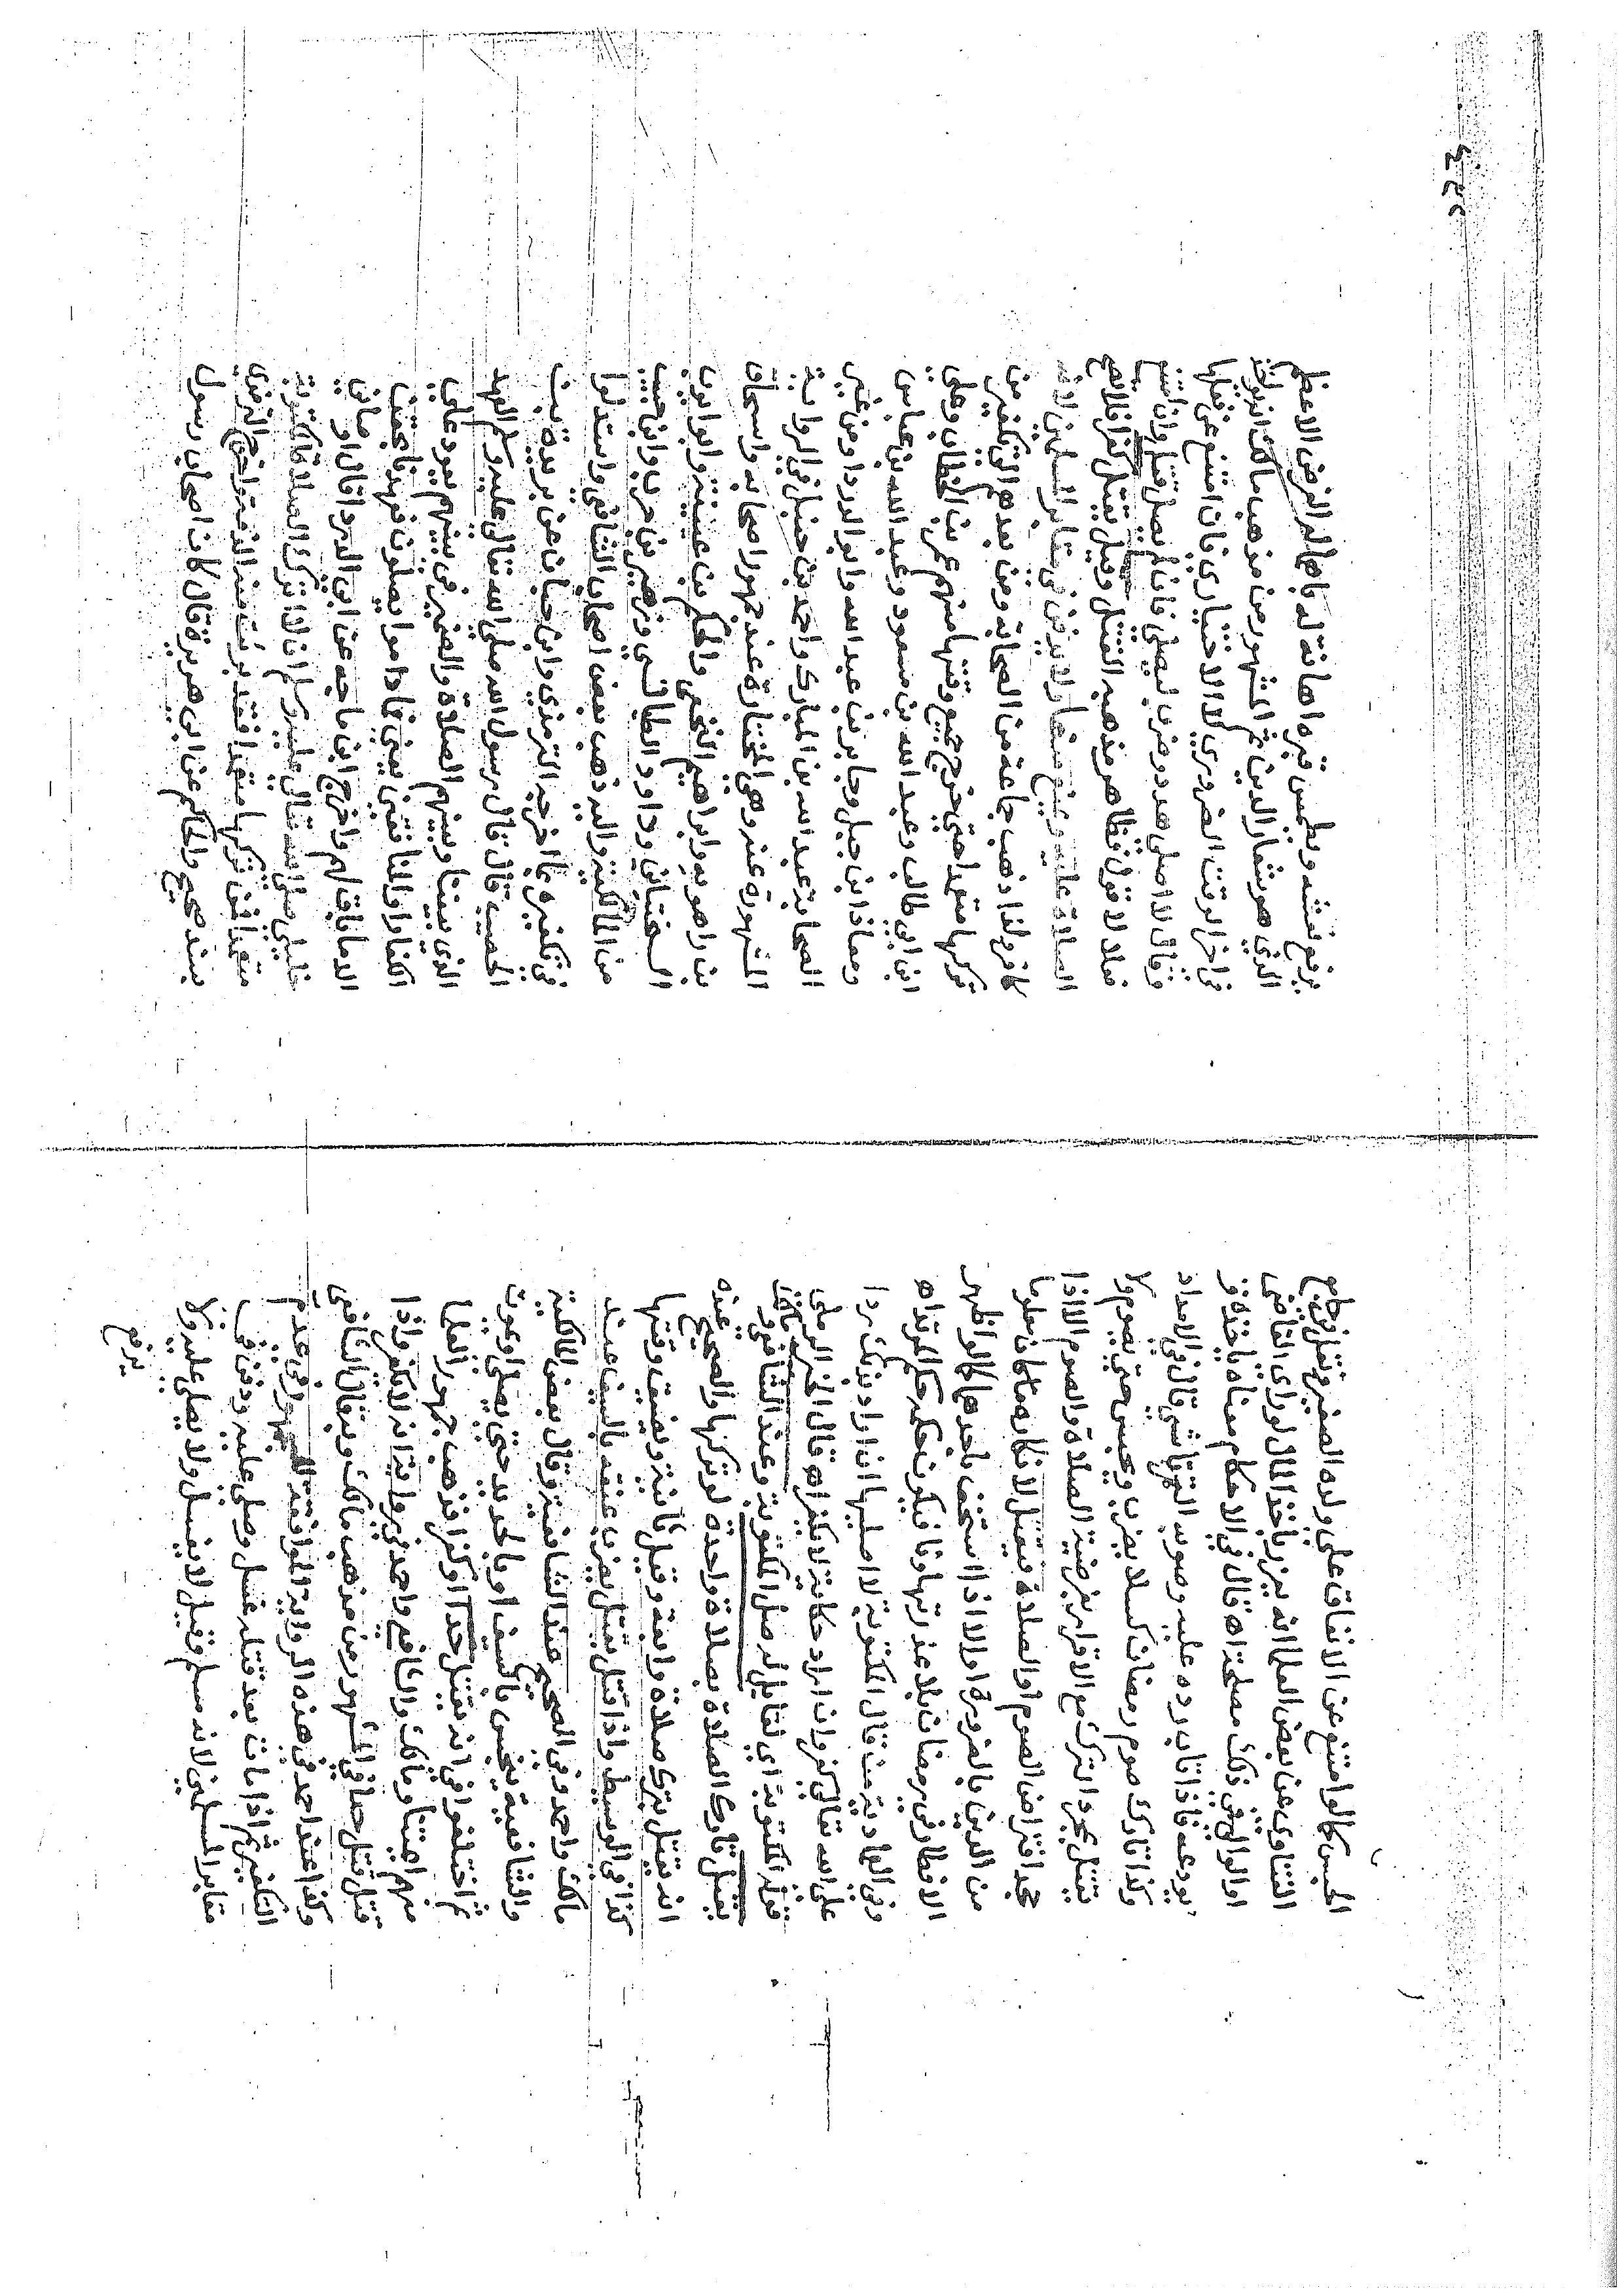 الحبس كما لو امتنع عن الانفاق على ولده الصغير ونقل في جامع
الفتاوى عن بعض العلما انه يعزر باخذ المال لو راى القاضي
او الوالي في ذلك مصلحة اه قال في الاحكام معناه ياخذه و
يودعه فاذا تاب رده عليه وصوبه التمرتاشي قال في الامداد
وكذا تارك صوم رمضان كسلا يضرب ويحبس حتى يصوم ولا
يقتل بمجرد الترك مع الاقرار بفرضية الصلاة والصوم الا اذا
جحد افتراض الصوم او الصلاة فيقتل لانكاره ما كان معلوما
من الدين بالضرورة او الا اذا استخف باحدهما كما لو اظهر
الافطار في رمضان بلا عذر تهاونا فيكون حكمه حكم المرتد اه
وفي العمادية من قال المكتوبة لا اصليها ان اراد بذلك ردا
على الله تعالى كفر وان اراد حكاية لا يكفر اه قال الخير الرملي
قوله المكتوبة اي لقايل له صل المكتوبة وعند الشافعي
يقتل تارك الصلاة بصلاة واحدة لو تركها والصحيح عنده
انه يقتل بترك صلاة رابعة وقيل ثانية وبضيق وقتها
كذا في الوسيط واذا قتل يقتل بضرب عنقه بالسيف عند
مالك واحمد وفي الصحيح عند الشافعية وقال بعض المالكية
والشافعية ينخس بالسيف او بالحديد حتى يصلي او يموت
ثم اختلفوا في انه يقتل حدا او كفرا فذهب جمهور العلما
منهم ايمتنا ومالك والشافعي واحمد في رواية انه لا يكفر واذا
قتل قتل حدا في المشهور من مذهب مالك وبه قال الشافعي
وكذا عند احمد في هذه الرواية الموافقة للجمهور في عدم
التكفير ثم اذا مات بعد قتله غسل وصلي عليه ودفن في
مقابر المسلمين لانه مسلم وقيل لا يغسل ولا يصلى عليه ولا
يرفع
يرفع نعشه ويطمس قبره اهانة له باهماله الفرض الاعظم
الذي هو شعار الدين ثم المشهور من مذهب مالك انه يوخر
في اخر الوقت الضروري لا الاختياري فان امتنع عن فعلها
وقال لا اصلي هدد وضرب ليصلي فان لم يصل قتل وان امتنع
فعلا لا قولا فظاهر مذهبه القتل وقيل يقتل كفرا فلا تجوز
الصلاة عليه ويمنع منها ولا يدفن في مقابر المسلمين لانه
كافر ولذا ذهب جماعة من الصحابة ومن بعدهم الى تكفير من
تركها متعمدا حتى خرج جميع وقتها منهم عمر بن الخطاب وعلي
ابن ابي طالب وعبد الله بن مسعود وعبد الله بن عباس
ومعاذ ابن جبل وجابر بن عبد الله وابو الدردا ومن غير
الصحابة عبد الله بن المبارك واحمد بن حنبل في الرواية
المشهورة عنه وهي المختارة عند جمهور اصحابه واسحاق
بن راهويه وابراهيم النخعي والحكم بن عتيبة وابو ايوب
السختياني وداود الطيالسي وزهير بن حرب وابن حبيب
من المالكية واليه ذهب بعض اصحاب الشافعي واستدلوا
في تكفيره بما اخرجه الترمذي وابن حبان عن بريدة بن
الحصيب قال قال رسول الله صلى الله تعالى عليه وسلم العهد
الذي بيننا وبينهم الصلاة والضمير في بينهم يعود على
الكفار او المنافقين يعني فما داموا يصلون فهم باحقين
الدما باق لهم واخرج ابن ماجه عن ابي الدردا قال اوصاني
خليلي صلى الله تعالى عليه وسلم ان لا اترك الصلاة المكتوبة
متعمدا فمن تركها متعمدا فقد برئت منه الذمة واخرج الترمذي
بسند صحيح والحاكم عن ابي هريرة قال كان اصحاب رسول